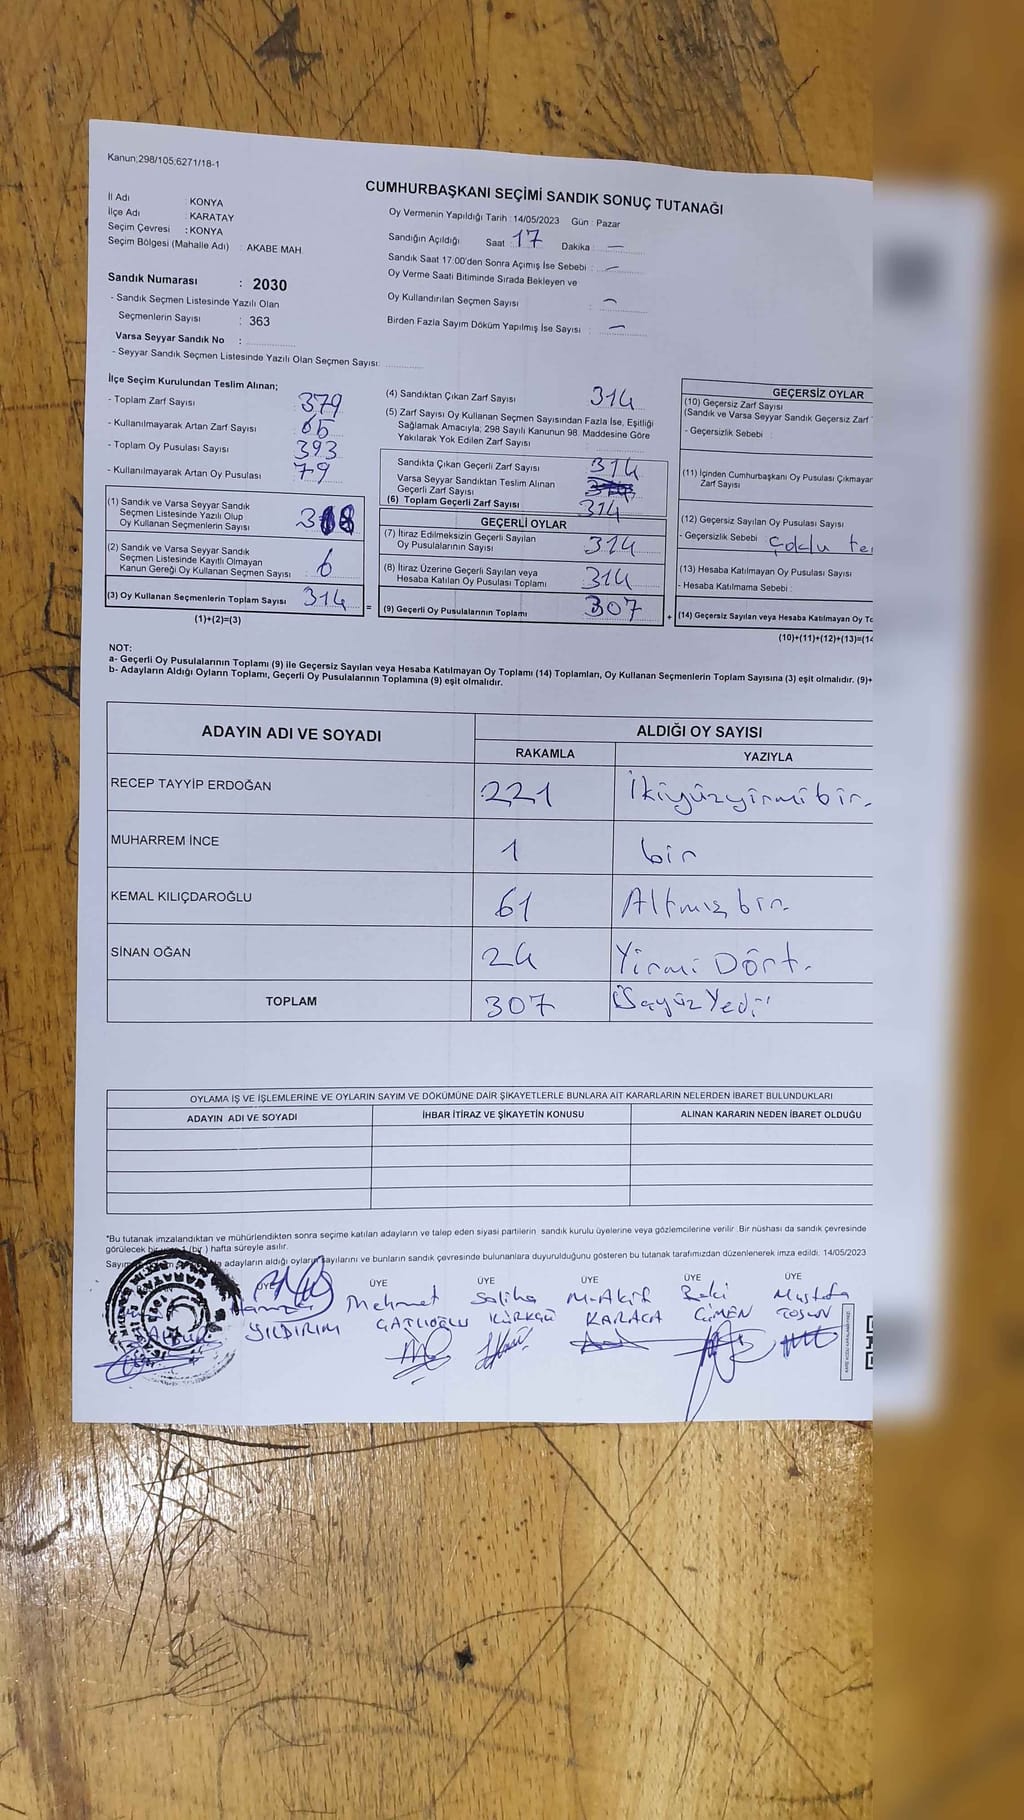 Kanun;298/105;6271/18-1
CUMHURBAŞKANI SEÇİMİ SANDIK SONUÇ TUTANAĞI
İl Adı : KONYA
İlçe Adı : KARATAY
Seçim Çevresi : KONYA
Seçim Bölgesi (Mahalle Adı) : AKABE MAH.
Sandık Numarası : 2030
- Sandık Seçmen Listesinde Yazılı Olan
Seçmenlerin Sayısı : 363
Varsa Seyyar Sandık No :
- Seyyar Sandık Seçmen Listesinde Yazılı Olan Seçmen Sayısı:
Oy Vermenin Yapıldığı Tarih : 14/05/2023 Gün : Pazar
Sandığın Açıldığı Saat : 17 Dakika : —
Sandık Saat 17:00'den Sonra Açımış İse Sebebi : —
Oy Verme Saati Bitiminde Sırada Bekleyen ve
Oy Kullandırılan Seçmen Sayısı : —
Birden Fazla Sayım Döküm Yapılmış İse Sayısı : —
İlçe Seçim Kurulundan Teslim Alınan;
- Toplam Zarf Sayısı 379
- Kullanılmayarak Artan Zarf Sayısı 65
- Toplam Oy Pusulası Sayısı 393
- Kullanılmayarak Artan Oy Pusulası 79
(1) Sandık ve Varsa Seyyar Sandık
Seçmen Listesinde Yazılı Olup
Oy Kullanan Seçmenlerin Sayısı
(2) Sandık ve Varsa Seyyar Sandık
Seçmen Listesinde Kayıtlı Olmayan
Kanun Gereği Oy Kullanan Seçmen Sayısı 6
(3) Oy Kullanan Seçmenlerin Toplam Sayısı 314 =
(1)+(2)=(3)
(4) Sandıktan Çıkan Zarf Sayısı 314
(5) Zarf Sayısı Oy Kullanan Seçmen Sayısından Fazla İse, Eşitliği
Sağlamak Amacıyla; 298 Sayılı Kanunun 98. Maddesine Göre
Yakılarak Yok Edilen Zarf Sayısı
Sandıkta Çıkan Geçerli Zarf Sayısı 314
Varsa Seyyar Sandıktan Teslim Alınan
Geçerli Zarf Sayısı
(6) Toplam Geçerli Zarf Sayısı 314
GEÇERLİ OYLAR
(7) İtiraz Edilmeksizin Geçerli Sayılan
Oy Pusulalarının Sayısı 314
(8) İtiraz Üzerine Geçerli Sayılan veya
Hesaba Katılan Oy Pusulası Toplamı 314
(9) Geçerli Oy Pusulalarının Toplamı 307 +
GEÇERSİZ OYLAR
(10) Geçersiz Zarf Sayısı
(Sandık ve Varsa Seyyar Sandık Geçersiz Zarf
- Geçersizlik Sebebi :
(11) İçinden Cumhurbaşkanı Oy Pusulası Çıkmayar
Zarf Sayısı
(12) Geçersiz Sayılan Oy Pusulası Sayısı
- Geçersizlik Sebebi Çoklu ter
(13) Hesaba Katılmayan Oy Pusulası Sayısı
- Hesaba Katılmama Sebebi :
(14) Geçersiz Sayılan veya Hesaba Katılmayan Oy To
(10)+(11)+(12)+(13)=(14
NOT:
a- Geçerli Oy Pusulalarının Toplamı (9) ile Geçersiz Sayılan veya Hesaba Katılmayan Oy Toplamı (14) Toplamları, Oy Kullanan Seçmenlerin Toplam Sayısına (3) eşit olmalıdır. (9)+
b- Adayların Aldığı Oyların Toplamı, Geçerli Oy Pusulalarının Toplamına (9) eşit olmalıdır.
ADAYIN ADI VE SOYADI ALDIĞI OY SAYISI
RAKAMLA YAZIYLA
RECEP TAYYİP ERDOĞAN 221 İkiyüzyirmibir.
MUHARREM İNCE 1 bir
KEMAL KILIÇDAROĞLU 61 Altmışbir.
SİNAN OĞAN 24 Yirmi Dört.
TOPLAM 307 Üçyüz Yedi
OYLAMA İŞ VE İŞLEMLERİNE VE OYLARIN SAYIM VE DÖKÜMÜNE DAİR ŞİKAYETLERLE BUNLARA AİT KARARLARIN NELERDEN İBARET BULUNDUKLARI
ADAYIN ADI VE SOYADI İHBAR İTİRAZ VE ŞİKAYETİN KONUSU ALINAN KARARIN NEDEN İBARET OLDUĞU
*Bu tutanak imzalandıktan ve mühürlendikten sonra seçime katılan adayların ve talep eden siyasi partilerin sandık kurulu üyelerine veya gözlemcilerine verilir. Bir nüshası da sandık çevresinde
görülecek bir yere 1 (bir ) hafta süreyle asılır.
adayların aldığı oyların sayılarını ve bunların sandık çevresinde bulunanlara duyurulduğunu gösteren bu tutanak tarafımızdan düzenlenerek imza edildi. 14/05/2023
ÜYE ÜYE ÜYE ÜYE ÜYE ÜYE
Hamza Mehmet Saliha M.Akif Zeki Mustafa
YILDIRIM ÇATLIOĞLU KÜRKÇÜ KARACA ÇİMEN TOSUN